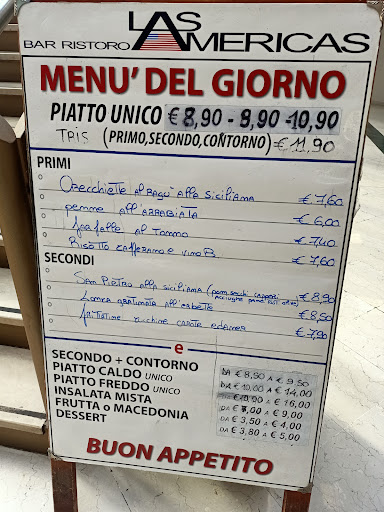 LAS
BAR RISTORO AMERICAS
MENU' DEL GIORNO
PIATTO UNICO € 8,90 - 9,90 - 10,90
TRIS (PRIMO, SECONDO, CONTORNO) € 11,90
PRIMI
Orecchiette al ragù alla siciliana € 7,60
penne all'arrabiata € 6,00
farfalle al tonno € 7,40
Risotto zafferano e vino B € 7,60
SECONDI
San Pietro alla siciliana (pom. secchi capperi € 8,90
acciughe pane olive)
Lonza gratinata all'erbette € 8,50
zucchine carote edamer € 7,90
e
SECONDO + CONTORNO DA € 8,50 A € 9,50
PIATTO CALDO UNICO DA € 10,00 A € 14,00
PIATTO FREDDO UNICO € 10,90 A € 16,00
INSALATA MISTA DA € 7,00 A € 9,00
FRUTTA o MACEDONIA DA € 3,50 A € 4,00
DESSERT DA € 3,80 A € 5,00
BUON APPETITO